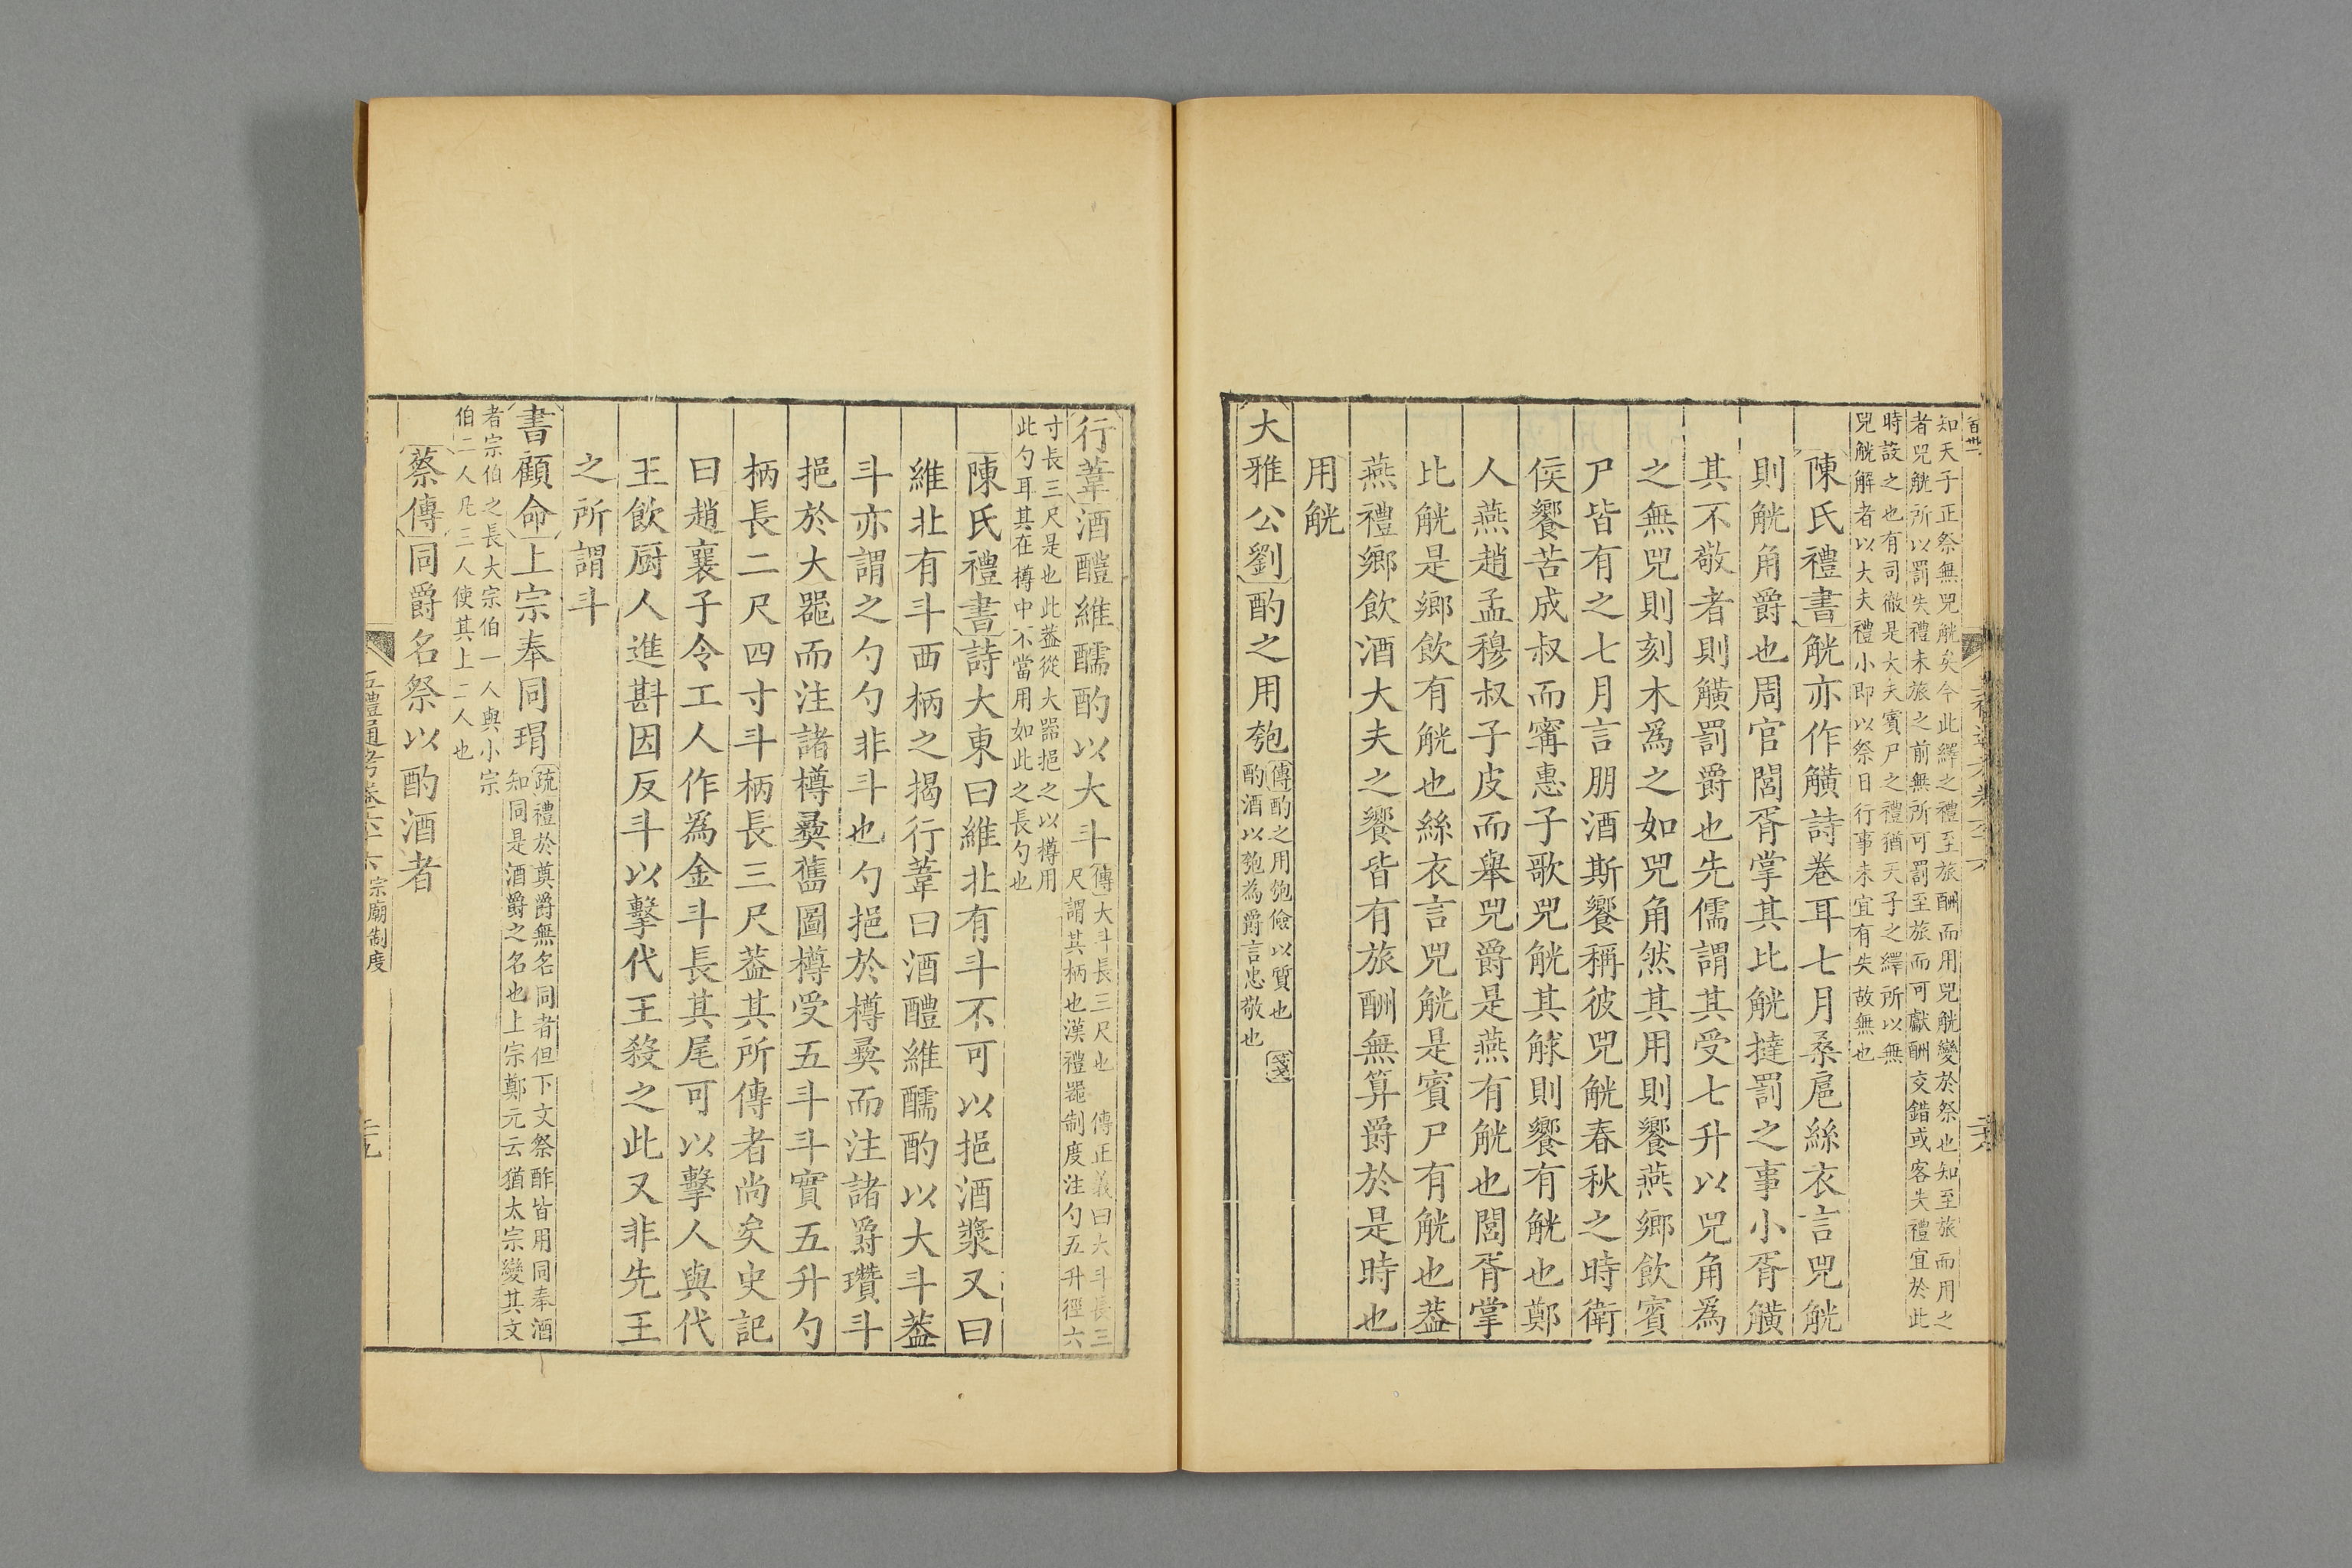 知天子正祭無兕觥矣今此繹之禮至旅酬而用兕觥變於祭也知至旅而用之
者兕觥所以罰失禮未旅之前無所可罰至旅而可獻酬交錯或容失禮宜於此
時設之也有司徹是大夫賓尸之禮猶天子之繹所以無
兕觥解者以大夫禮小即以祭日行事未宜有失故無也
陳氏禮書觥亦作觵詩卷耳七月桑扈絲衣言兕觥
則觥角爵也周官閭胥掌其比觥撻罰之事小胥觵
其不敬者則觵罰爵也先儒謂其受七升以兕角為
之無兕則刻木爲之如兕角然其用則饗燕鄉飲賓
尸皆有之七月言朋酒斯饗稱彼兕觥春秋之時衛
侯饗苦成叔而寗惠子歌兕觥其觩則饗有觥也鄭
人燕趙孟穆叔子皮而舉兕爵是燕有觥也閭胥掌
比觥是鄉飲有觥也絲衣言兕觥是賓尸有觥也葢
燕禮鄉飲酒大夫之饗皆有旅酬無算爵於是時也
用觥
大雅公劉酌之用匏
傳酌之用匏儉以質也 箋
酌酒以匏為爵言忠敬也
行葦酒醴維醹酌以大斗
傳大斗長三尺也 傳正義曰大斗長三
尺謂其柄也漢禮器制度注勺五升徑六
寸長三尺是也此葢從大器挹之以樽用
此勺耳其在樽中不當用如此之長勺也
陳氏禮書詩大東曰維北有斗不可以挹酒漿又曰
維北有斗西柄之揭行葦曰酒醴維醹酌以大斗葢
斗亦謂之勺勺非斗也勺挹於樽彝而注諸爵瓚斗
挹於大噐而注諸樽彝舊圖樽受五斗斗實五升勺
柄長二尺四寸斗柄長三尺葢其所傳者尚矣史記
曰趙襄子令工人作為金斗長其尾可以擊人與代
王飲厨人進斟因反斗以擊代王殺之此又非先王
之所謂斗
書顧命上宗奉同瑁
疏禮於奠爵無名同者但下文祭酢皆用同奉酒
知同是酒爵之名也上宗鄭元云猶太宗變其文
者宗伯之長大宗伯一人與小宗
伯二人凡三人使其上二人也
蔡傳同爵名祭以酌酒者
五禮通考卷六十六 宗廟制度